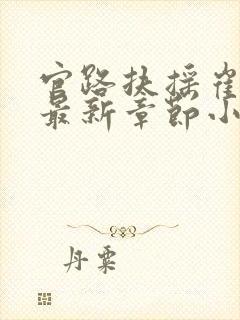 官路扶摇崔
最新章节小
丹粟